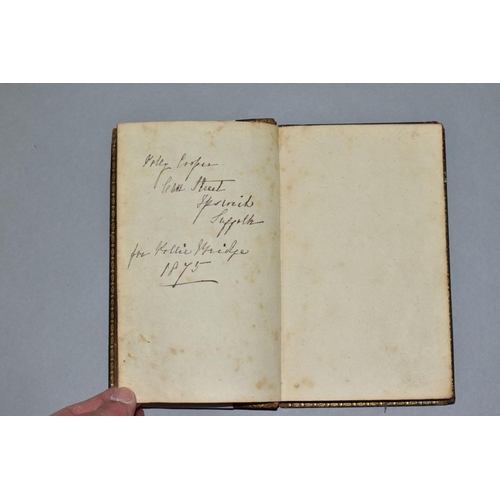 Polly Cooper
Street
Ipswich
Suffolk
for Pollie Bridge
1875